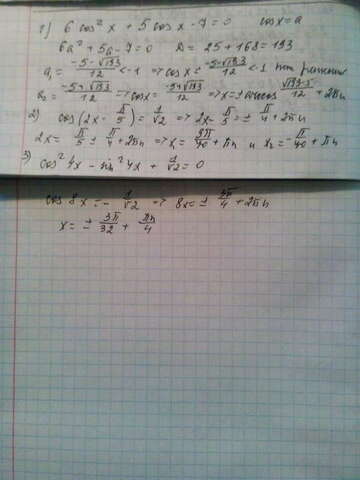 1) 6 cos² x + 5 cos x - 7 = 0 cos x = a
6a² + 5a - 7 = 0 D = 25 + 168 = 193
a₁ = (-5 - √193)/12 < -1 => cos x = (-5 - √193)/12 < -1 нет решения
a₂ = (-5 + √193)/12 => cos x = (-5 + √193)/12 => x = ± arccos (√193 - 5)/12 + 2πn
2) cos(2x - π/5) = 1/√2 => 2x - π/5 = ± π/4 + 2πn
2x = π/5 ± π/4 + 2πn => x₁ = 9π/40 + πn и x₂ = -π/40 + πn
3) cos² 4x - sin² 4x + 1/√2 = 0
cos 8x = - 1/√2 => 8x = ± 3π/4 + 2πn
x = ± 3π/32 + πn/4